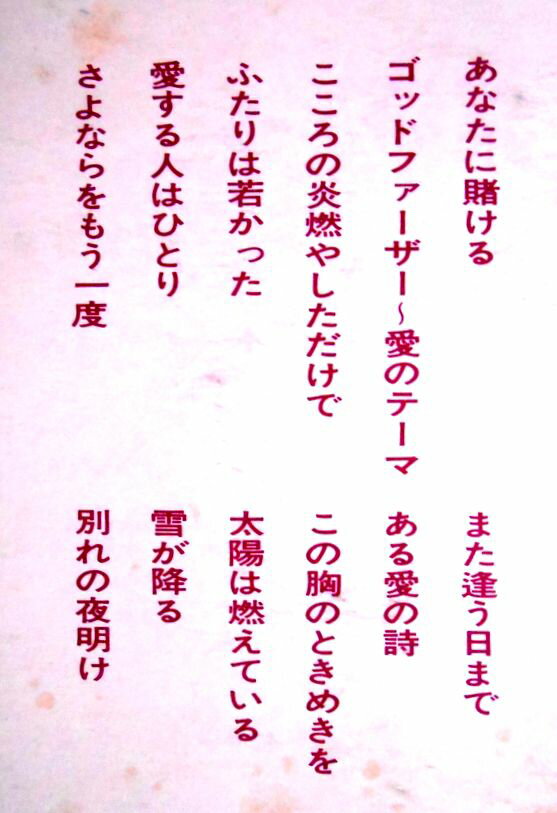 あなたに賭ける
ゴッドファーザー~愛のテーマ
こころの炎燃やしただけで
ふたりは若かった
愛する人はひとり
さよならをもう一度
また逢う日まで
ある愛の詩
この胸のときめきを
太陽は燃えている
雪が降る
別れの夜明け